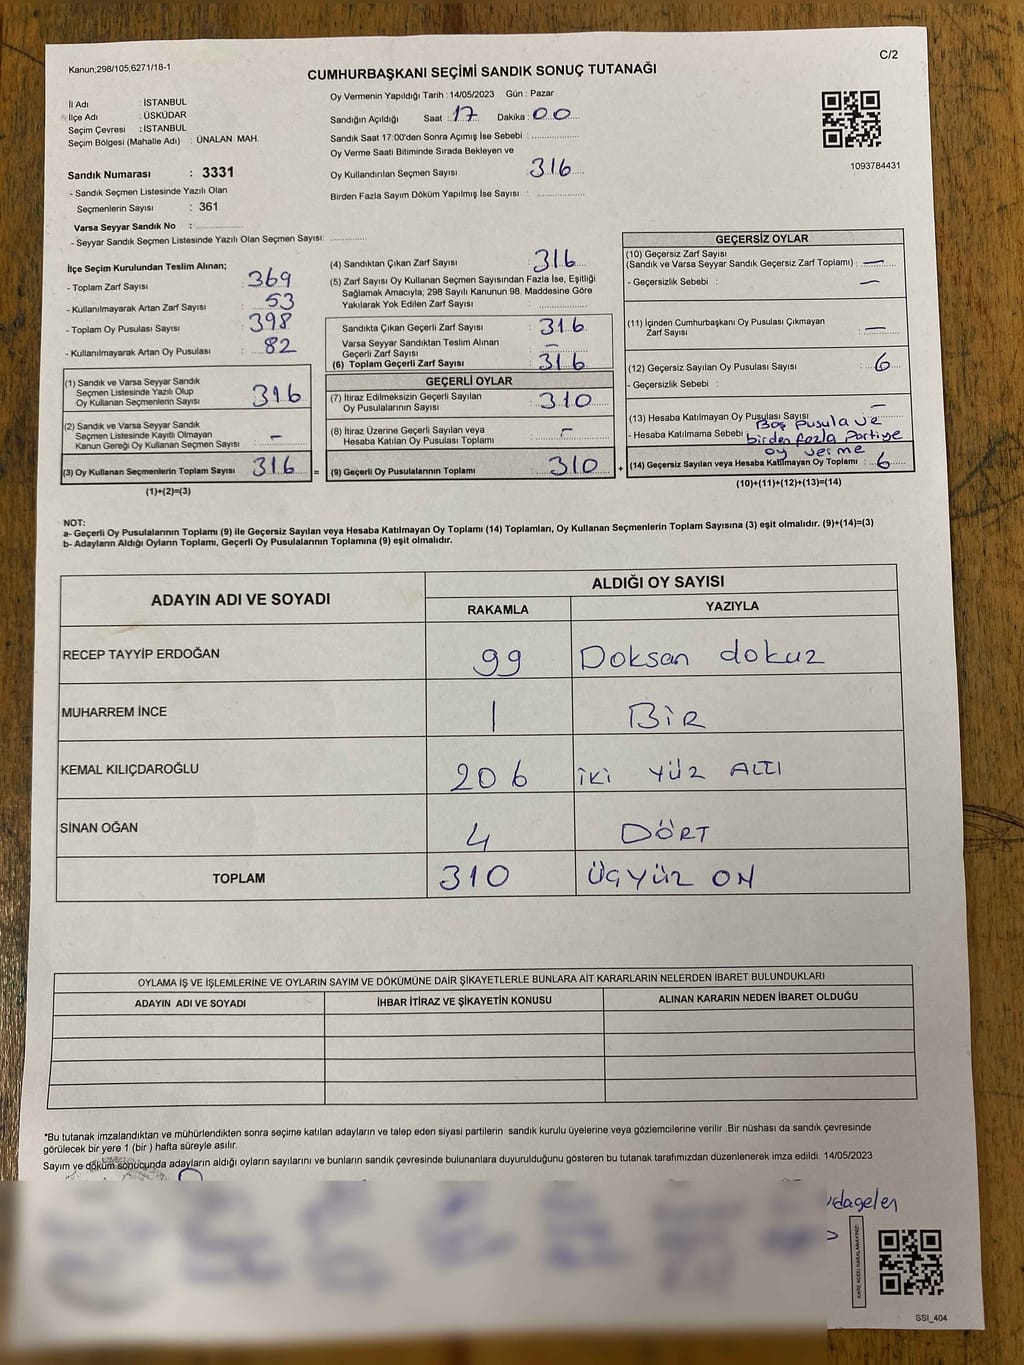 Kanun;298/105;6271/18-1
C/2
CUMHURBAŞKANI SEÇİMİ SANDIK SONUÇ TUTANAĞI
İl Adı : İSTANBUL
İlçe Adı : ÜSKÜDAR
Seçim Çevresi : İSTANBUL
Seçim Bölgesi (Mahalle Adı) : ÜNALAN MAH.
Sandık Numarası : 3331
- Sandık Seçmen Listesinde Yazılı Olan
Seçmenlerin Sayısı : 361
Varsa Seyyar Sandık No :
- Seyyar Sandık Seçmen Listesinde Yazılı Olan Seçmen Sayısı:
Oy Vermenin Yapıldığı Tarih : 14/05/2023 Gün : Pazar
Sandığın Açıldığı Saat : 17 Dakika : 00
Sandık Saat 17:00'den Sonra Açımış İse Sebebi :
Oy Verme Saati Bitiminde Sırada Bekleyen ve
Oy Kullandırılan Seçmen Sayısı : 316
Birden Fazla Sayım Döküm Yapılmış İse Sayısı :
1093784431
İlçe Seçim Kurulundan Teslim Alınan;
- Toplam Zarf Sayısı : 369
- Kullanılmayarak Artan Zarf Sayısı : 53
- Toplam Oy Pusulası Sayısı : 398
- Kullanılmayarak Artan Oy Pusulası : 82
(1) Sandık ve Varsa Seyyar Sandık
Seçmen Listesinde Yazılı Olup
Oy Kullanan Seçmenlerin Sayısı : 316
(2) Sandık ve Varsa Seyyar Sandık
Seçmen Listesinde Kayıtlı Olmayan
Kanun Gereği Oy Kullanan Seçmen Sayısı : -
(3) Oy Kullanan Seçmenlerin Toplam Sayısı : 316 =
(1)+(2)=(3)
(4) Sandıktan Çıkan Zarf Sayısı : 316
(5) Zarf Sayısı Oy Kullanan Seçmen Sayısından Fazla İse, Eşitliği
Sağlamak Amacıyla; 298 Sayılı Kanunun 98. Maddesine Göre
Yakılarak Yok Edilen Zarf Sayısı :
Sandıkta Çıkan Geçerli Zarf Sayısı : 316
Varsa Seyyar Sandıktan Teslim Alınan
Geçerli Zarf Sayısı : -
(6) Toplam Geçerli Zarf Sayısı : 316
GEÇERLİ OYLAR
(7) İtiraz Edilmeksizin Geçerli Sayılan
Oy Pusulalarının Sayısı : 310
(8) İtiraz Üzerine Geçerli Sayılan veya
Hesaba Katılan Oy Pusulası Toplamı : -
(9) Geçerli Oy Pusulalarının Toplamı : 310 +
GEÇERSİZ OYLAR
(10) Geçersiz Zarf Sayısı
(Sandık ve Varsa Seyyar Sandık Geçersiz Zarf Toplamı) : -
- Geçersizlik Sebebi : -
(11) İçinden Cumhurbaşkanı Oy Pusulası Çıkmayan
Zarf Sayısı : -
(12) Geçersiz Sayılan Oy Pusulası Sayısı : 6
- Geçersizlik Sebebi :
(13) Hesaba Katılmayan Oy Pusulası Sayısı : -
- Hesaba Katılmama Sebebi : Boş pusula ve
birden fazla partiye
oy verme
(14) Geçersiz Sayılan veya Hesaba Katılmayan Oy Toplamı : 6
(10)+(11)+(12)+(13)=(14)
NOT:
a- Geçerli Oy Pusulalarının Toplamı (9) ile Geçersiz Sayılan veya Hesaba Katılmayan Oy Toplamı (14) Toplamları, Oy Kullanan Seçmenlerin Toplam Sayısına (3) eşit olmalıdır. (9)+(14)=(3)
b- Adayların Aldığı Oyların Toplamı, Geçerli Oy Pusulalarının Toplamına (9) eşit olmalıdır.
ADAYIN ADI VE SOYADI ALDIĞI OY SAYISI
RAKAMLA YAZIYLA
RECEP TAYYİP ERDOĞAN 99 Doksan dokuz
MUHARREM İNCE 1 BİR
KEMAL KILIÇDAROĞLU 206 iki YÜZ ALTI
SİNAN OĞAN 4 DÖRT
TOPLAM 310 ÜÇYÜZ ON
OYLAMA İŞ VE İŞLEMLERİNE VE OYLARIN SAYIM VE DÖKÜMÜNE DAİR ŞİKAYETLERLE BUNLARA AİT KARARLARIN NELERDEN İBARET BULUNDUKLARI
ADAYIN ADI VE SOYADI İHBAR İTİRAZ VE ŞİKAYETİN KONUSU ALINAN KARARIN NEDEN İBARET OLDUĞU
*Bu tutanak imzalandıktan ve mühürlendikten sonra seçime katılan adayların ve talep eden siyasi partilerin sandık kurulu üyelerine veya gözlemcilerine verilir .Bir nüshası da sandık çevresinde
görülecek bir yere 1 (bir ) hafta süreyle asılır.
Sayım ve döküm sonucunda adayların aldığı oyların sayılarını ve bunların sandık çevresinde bulunanlara duyurulduğunu gösteren bu tutanak tarafımızdan düzenlenerek imza edildi. 14/05/2023
KARE KODU KARALAMAYINIZ!
SSI_404